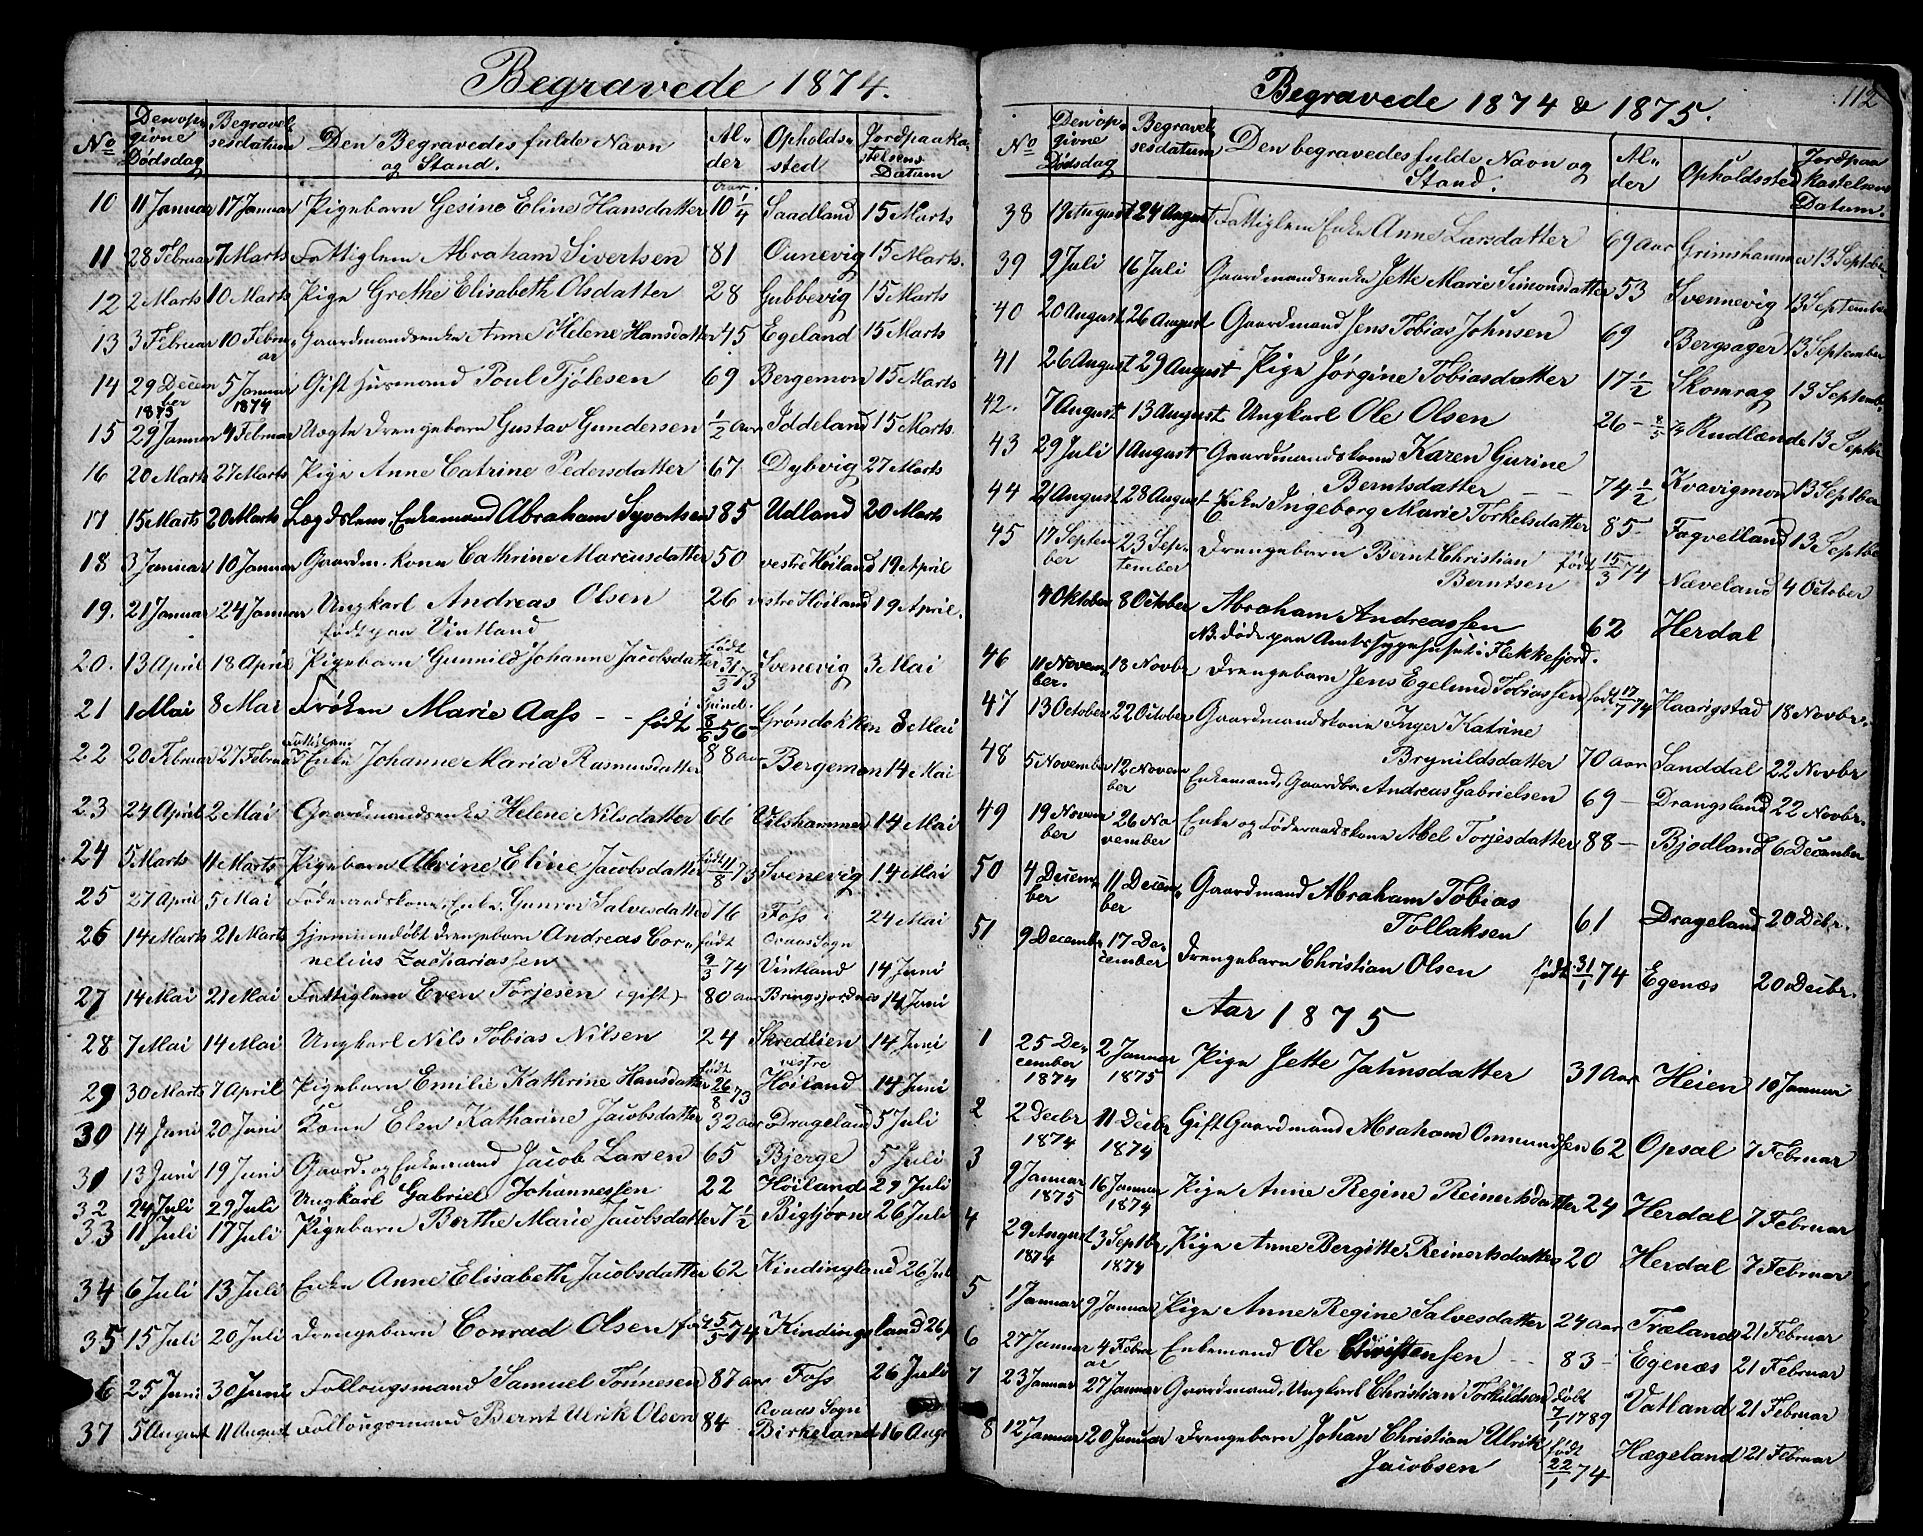 Begravede 1874.
No Den op- givne Dødsdag Begravel- sesdatum Den Begravedes fulde Navn og Stand. Al- der Opholds- sted Jordpaaka- stelsens Datum
10 11 Januar 17 Januar Pigebarn Gesine Eline Hansdatter Aar. 10 1/4 Saadland 15 Marts
11 28 Februar 7 Marts Fattiglem Abraham Sivertsen 81 Ounevig 15 Marts.
12 2 Marts 10 Marts Pige Grethe Elisabeth Olsdatter 28 Gubbevig 15 Marts
13 3 Februar 10 Februar Gaardmandsenke Anne Helene Hansdatter 45 Egeland 15 Marts
14 29 December 1873 5 Januar 1874 Gift Husmand Poul Tjølesen 69 Bergemon 15 Marts
15 29 Januar 4 Februar Uægte Drengebarn Gustav Gundersen 1/2 Aar Iddeland 15 Marts
16 20 Marts 27 Marts Pige Anne Catrine Pedersdatter 67 Dybvig 27 Marts
17 15 Marts 20 Marts Lægdslem, Enkemand Abraham Syvertsen 85 Udland 20 Marts
18 3 Januar 10 Januar Gaardm. kone Cathrine Marcusdatter 50 vestre Høiland 19 April
19. 21 Januar 24 Januar Ungkarl Andreas Olsen 26 vestre Høiland 19 April.
født paa Vintland
20. 13 April 18 April Pigebarn Gunnild Johanne Jacobsdatter født 31/3 73 Svenevig 3 Mai
21 1 Mai 8 Mai Frøken Marie Aass - - født 8/6 56 Grøndokken 8 Mai
22 20 Februar 27 Februar Fattiglem Enke Johanne Maria Rasmusdatter 88 aar Bergemon 14 Mai
23 24 April 2 Mai Gaardmandsenke Helene Nilsdatter 66 Vilshammer 14 Mai
24 5 Marts 11 Marts Pigebarn Eline Jacobsdatter født 11/8 73 Svenevig 14 Mai
25 27 April 5 Mai Føderaadskone, Enke Gunvor Salvesdatter 76 Foss 24 Mai
26 14 Marts 21 Marts Hjemmedøbt Drengebarn Andreas Cor- født Qvaas Sogn
nelius Zachariassen 9/3 74 Vintland 14 Juni
27 14 Mai 21 Mai Fattiglem Even Torjesen (gift) 80 aar Bringsjordnes 14 Juni
28 7 Mai 14 Mai Ungkarl Nils Tobias Nilsen 24 Skredlien 14 Juni
29 30 Marts 7 April Pigebarn Emilie Kathrine Hansdatter født 26/8 73 vestre Høiland 14 Juni
30 14 Juni 20 Juni Kone Elen Katharine Jacobsdatter 32 aar Drageland 5 Juli
31 13 Juni 19 Juni Gaard- og Enkemand Jacob Larsen 65 Bjerge 5 Juli
32 24 Juli 29 Juli Ungkarl Gabriel Johannessen 22 Høiland 29 Juli
33 11 Juli 17 Juli Pigebarn Berthe Marie Jacobsdatter 7 1/2 Bigtjorn 26 Juli
34 6 Juli 13 Juli Enke Anne Elisabeth Jacobsdatter 62 Kindingland 26 Juli
35 15 Juli 20 Juli Drengebarn Conrad Olsen født 5/5 74 Kindingsland 26 J
36 25 Juni 30 Juni Follougsmand Samuel Tønnesen 87 aar Foss 26 Juli
37 5 August 11 August Follougsmand Bernt Ulrik Olsen 84 Qvaas Sogn Birkeland 16 Aug
112
Begravede 1874 & 1875.
No Den op- givne Dødsdag Begravel- sesdatum Den begravedes fulde Navn og Stand. Al- der Opholdssted Jordpaa kastelsens Datum.
38 19 August 24 August Fattiglem Enke Anne Larsdatter 69 aar Grimshammer 13 Septbr
39 9 Juli 16 Juli Gaardmandsenke Jette Marie Simonsdatter 53 Svennevig 13 September
40 20 August 26 August Gaardmand Jens Tobias Johnsen 69 Bergsager 13 September
41 26 August 29 August Pige Jørgine Tobiasdatter 17 1/2 Skomrag 13 Septemb.
42. 7 August 13 August Ungkarl Ole Olsen 26 - Rudlænde 13 Septbr
43 29 Juli 1 August Gaardmandskone Karen Gurine
Berntsdatter - - 74 1/2 Kvavigmon 13 Septbr
44 21 August 28 August Enke Ingeborg Marie Torkelsdatter 85- Fagvelland 13 Septbr
45 17 September 23 September Drengebarn Bernt Christian født 15/3 74
Berntsen Næveland 4 October
4 Oktober 8 October Abraham Andreassen 62 Herdal
NB. døde paa Amtssygehuset i Flekkefjord.
46 11 November. 18 Novbr Drengebarn Jens Egelund Tobiassen født 17/7 74 Haarigstad 18 Novbr.
47 13 October 22 October Gaardmandskone Inger Katrine
Brynildsdatter 70 aar Sanddal 22 Novbr
48 5 November 12 November Enkemand, Gaardbr. Andreas Gabrielsen 69 - Drangsland 22 Novbr.
49 19 November 26 November Enke og Føderaadskone Abel Torjesdatter 88 - Bjodland 6 December
50 4 December 11 December Gaardmand Abraham Tobias
Tollaksen 61 Drageland 20 Decbr.
51 9 December 17 December Drengebarn Christian Olsen født 31/1 74 Egenæs 20 Decbr.
Aar 1875
1 25 December 1874 2 Januar 1875 Pige Jette Jahnsdatter 31 Aar Heien 10 Januar
2 2 Decbr 1874 11 Decbr 1874 Gift Gaardmand Abraham Ommundsen 62 Opsal 7 Februar
3 9 Januar 1875 16 Januar 1874 Pige Anne Regine Reinertsdatter 24 Herdal 7 Februar
4 29 August 1874 3 Septbr 1874 Pige Anne Bergitte Reinertsdatter 20 Herdal 7 Februar
5 1 Januar 9 Januar Pige Anne Regine Salvesdatter 24 aar Træland 21 Februar
6 27 Januar 4 Februar Enkemand Ole Christensen - - 83 - Egenæs 21 Februar
7 23 Januar 27 Januar Gaardmand, Ungkarl Christian Torkildsen født 7/7 1789 Vatland 21 Februar
8 12 Januar 20 Januar Drengebarn Johan Christian Ulrik
Jacobsen født 22/1 74 Hægeland 21 Februar